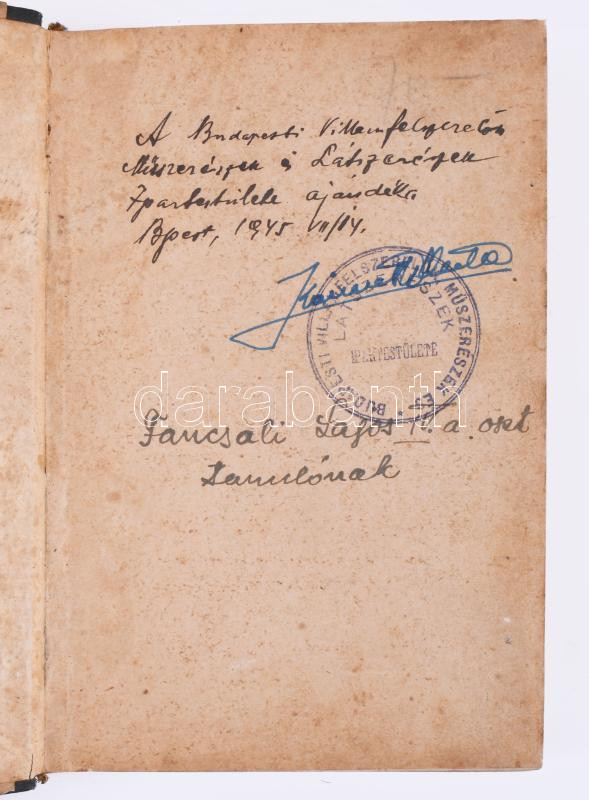 A Budapesti Villamfelszerelők
Műszerészek és Látszerészek
Ipartestülete ajándéka.
Bpest, 1945 VII/14.
BUDAPESTI VILLAMFELSZERELŐK MŰSZERÉSZEK ÉS
LÁTSZERÉSZEK
IPARTESTÜLETE
darabanth
Fancsali Lajos II. a. oszt
tanulónak